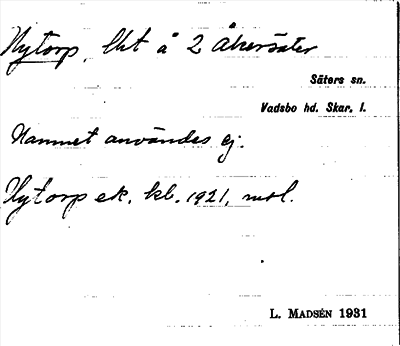 Nytorp, lht å 2 Åkersäter
Säters sn.
Vadsbo hd. Skar. l.
Namnet användes ej.
Nytorp ek. kb. 1921, msl.
L. MADSÉN 1931